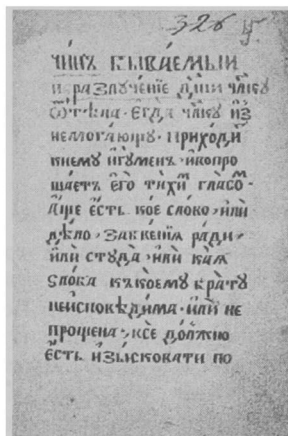 326
чи́нъ быва́емыи
и разлꙋче́нїе дш҃и ч҃лкꙋ
ѿ тѣ́ла · є҆гда̀ ч҃лкꙋ и҆з
немога́ющꙋ · приходи́
к немꙋ и҆гꙋменъ · и вопро
ша́етъ є҆го̀ ти́хи гла́со ·
а҆́ще є҆́сть ко́е сло́во · и҆лѝ
дѣ́ло · забве́нїѧ ра́ди ·
и҆лѝ стꙋда̀ · и҆лѝ ка́ѧ
ѕло́ба къ ко́емꙋ бра́тꙋ
неисповѣ́дима · и҆лѝ не
проще́на · всѐ до́лжно
є҆́сть и҆зы́сковати по